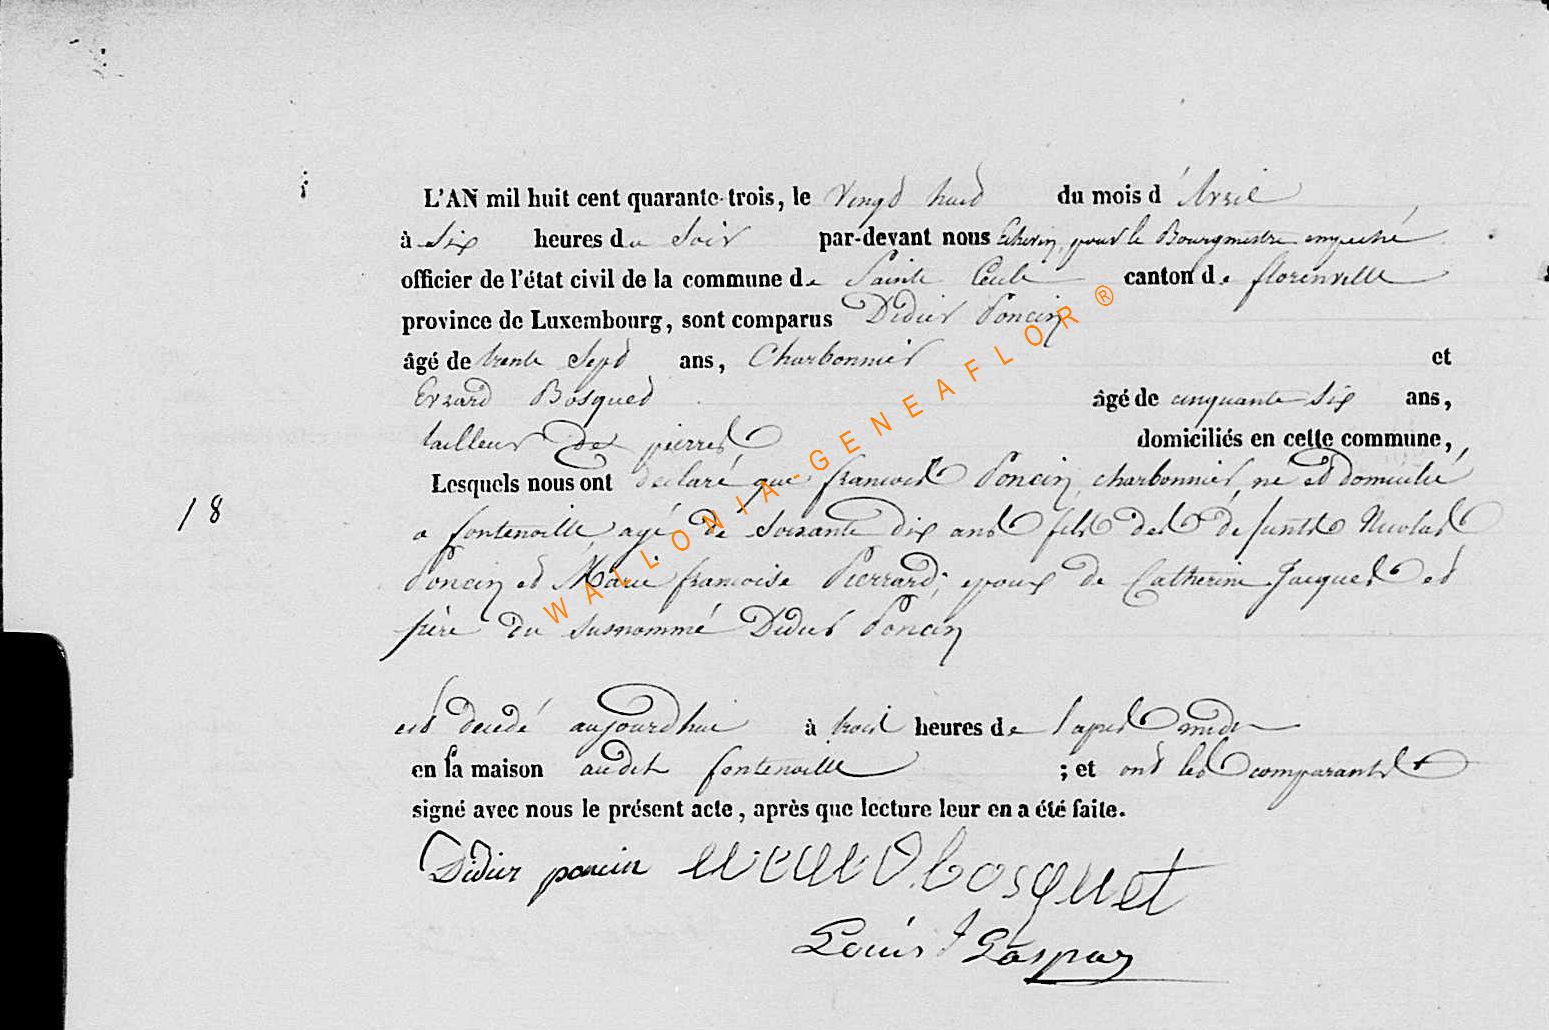 L'AN mil huit cent quarante-trois, le Vingt huit du mois d'Avril
à Six heures du Soir par-devant nous Echevin, pour le Bourgmestre empeché
officier de l'état civil de la commune de Sainte Cecile canton de florenville
province de Luxembourg, sont comparus Didier Poncin
âgé de trente Sept ans, Charbonnier et
Evrard Bosquet âgé de cinquante six ans,
tailleur de pierres domiciliés en cette commune,
Lesquels nous ont declaré que francois Poncin, charbonnier, né et domicilié
18
a fontenoille, agé de soixante dix ans fils des defunts Nicolas
Poncin et Marie francoise Pierrard; epoux de Catherine Jacques et
frère du susnommé Didier Poncin
est decedé aujourdhui à trois heures de l'apres midi
en la maison audit fontenoille ; et ont les comparants
signé avec nous le présent acte, après que lecture leur en a été faite.
Didier poncin evrard bosquet
Louis J Gaspar
WALLONIA-GENEAFLOR®